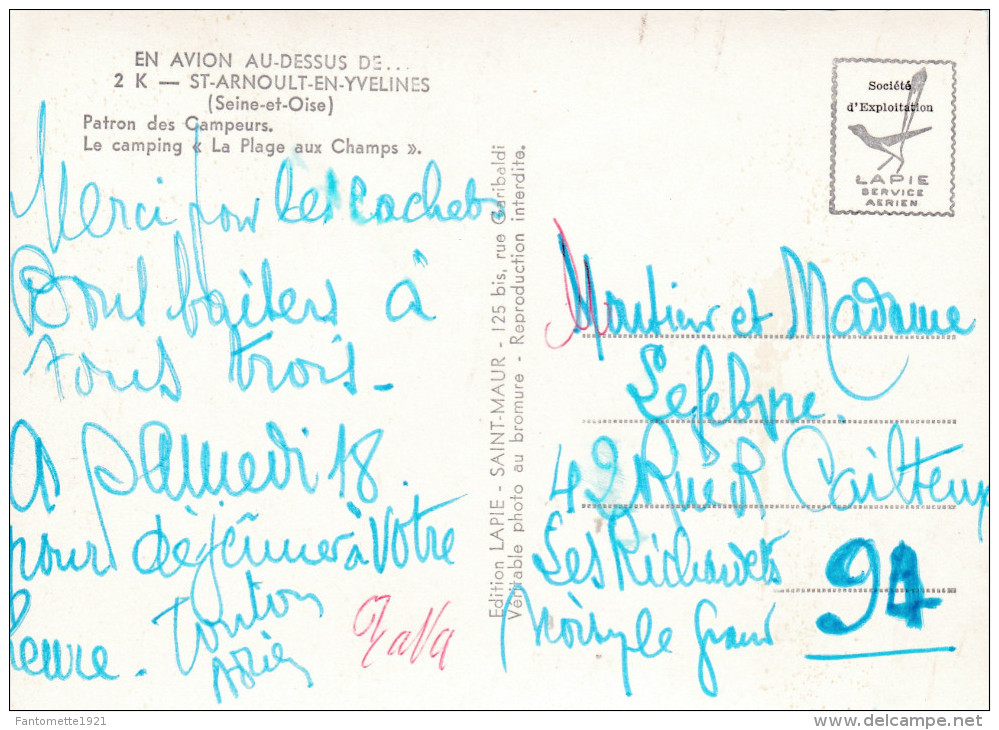 EN AVION AU-DESSUS DE...
2 K — ST-ARNOULT-EN-YVELINES
(Seine-et-Oise)
Patron des Campeurs.
Le camping « La Plage aux Champs ».
Merci pour les cachets
Bons baisers à
tous trois -
A samedi 18
pour déjeuner à votre
heure. Tonton
Zaza
Edition LAPIE - SAINT-MAUR - 125 bis, rue Garibaldi
Véritable photo au bromure - Reproduction interdite.
Société
d'Exploitation
LAPIE
SERVICE
AERIEN
Monsieur et Madame
Lefebvre.
42 Rue R Cailteux
Les Richardets
Noisy le Grand
94
Fantometto1921
delcampe.net